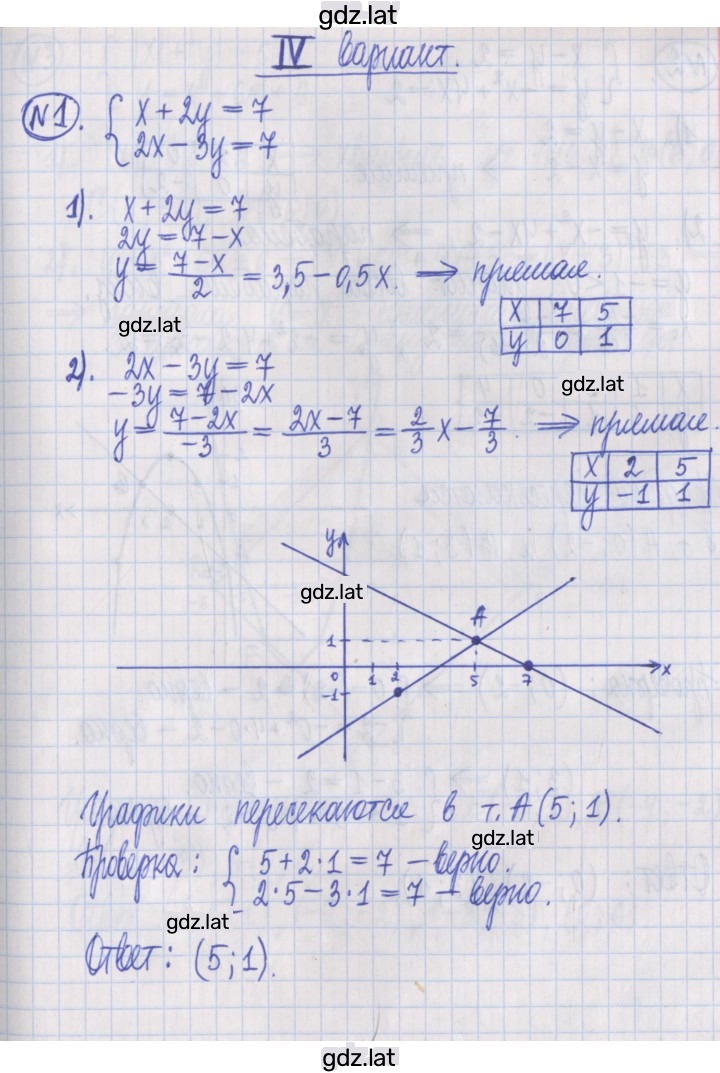 gdz.lat
IV вариант.
№1. { x + 2y = 7
2x − 3y = 7
1). x + 2y = 7
2y = 7 − x
y = (7 − x)/2 = 3,5 − 0,5x. ⟹ прямая.
x 7 5
y 0 1
gdz.lat
2). 2x − 3y = 7
gdz.lat
−3y = 7 − 2x
y = (7 − 2x)/−3 = (2x − 7)/3 = 2/3 x − 7/3. ⟹ прямая.
x 2 5
y −1 1
y
gdz.lat
A
1
0 1 2 5 7 x
−1
Графики пересекаются в т. A (5; 1).
gdz.lat
Проверка: { 5 + 2·1 = 7 − верно.
2·5 − 3·1 = 7 − верно.
gdz.lat
Ответ: (5; 1).
gdz.lat